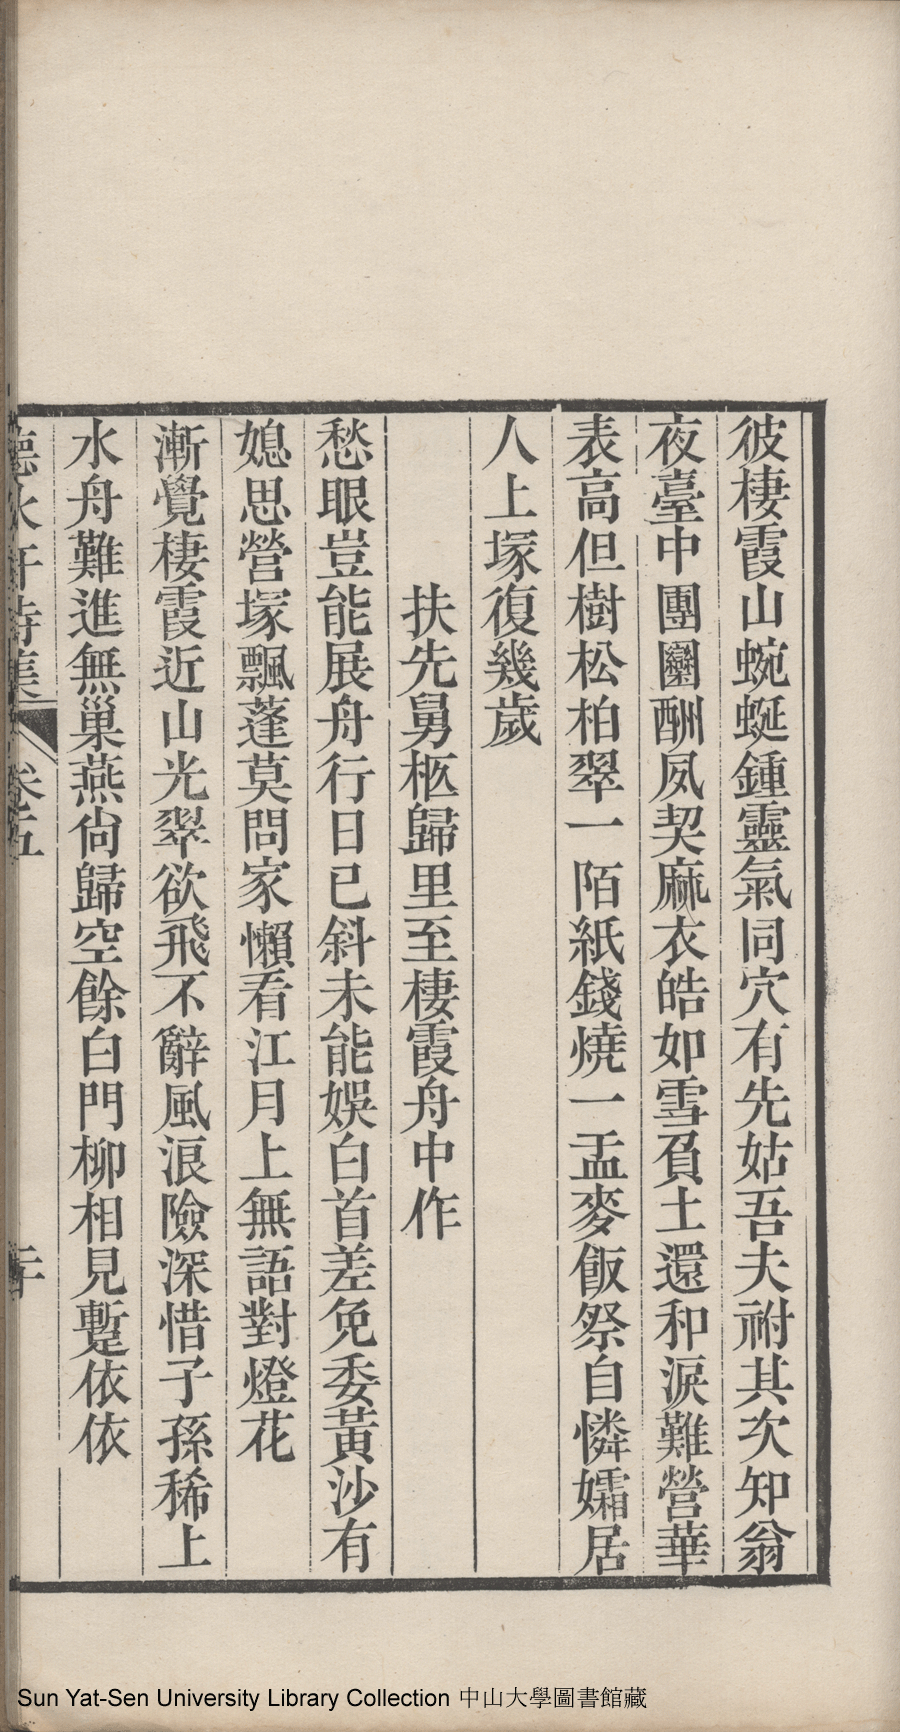 彼棲霞山蜿蜒鍾靈氣同穴有先姑吾夫祔其次知翁
夜臺中團圞酬夙契麻衣皓如雪負土還和淚難營華
表高但樹松柏翠一陌紙錢燒一盂麥飯祭自憐孀居
人上塚復幾歲
扶先舅柩歸里至棲霞舟中作
愁眼豈能展舟行日已斜未能娛白首差免委黃沙有
媳思營塚飄蓬莫問家懶看江月上無語對燈花
漸覺棲霞近山光翠欲飛不辭風浪險深惜子孫稀上
水舟難進無巢燕尙歸空餘白門柳相見蹔依依
聽秋軒詩集 卷五
Sun Yat-Sen University Library Collection 中山大學圖書館藏